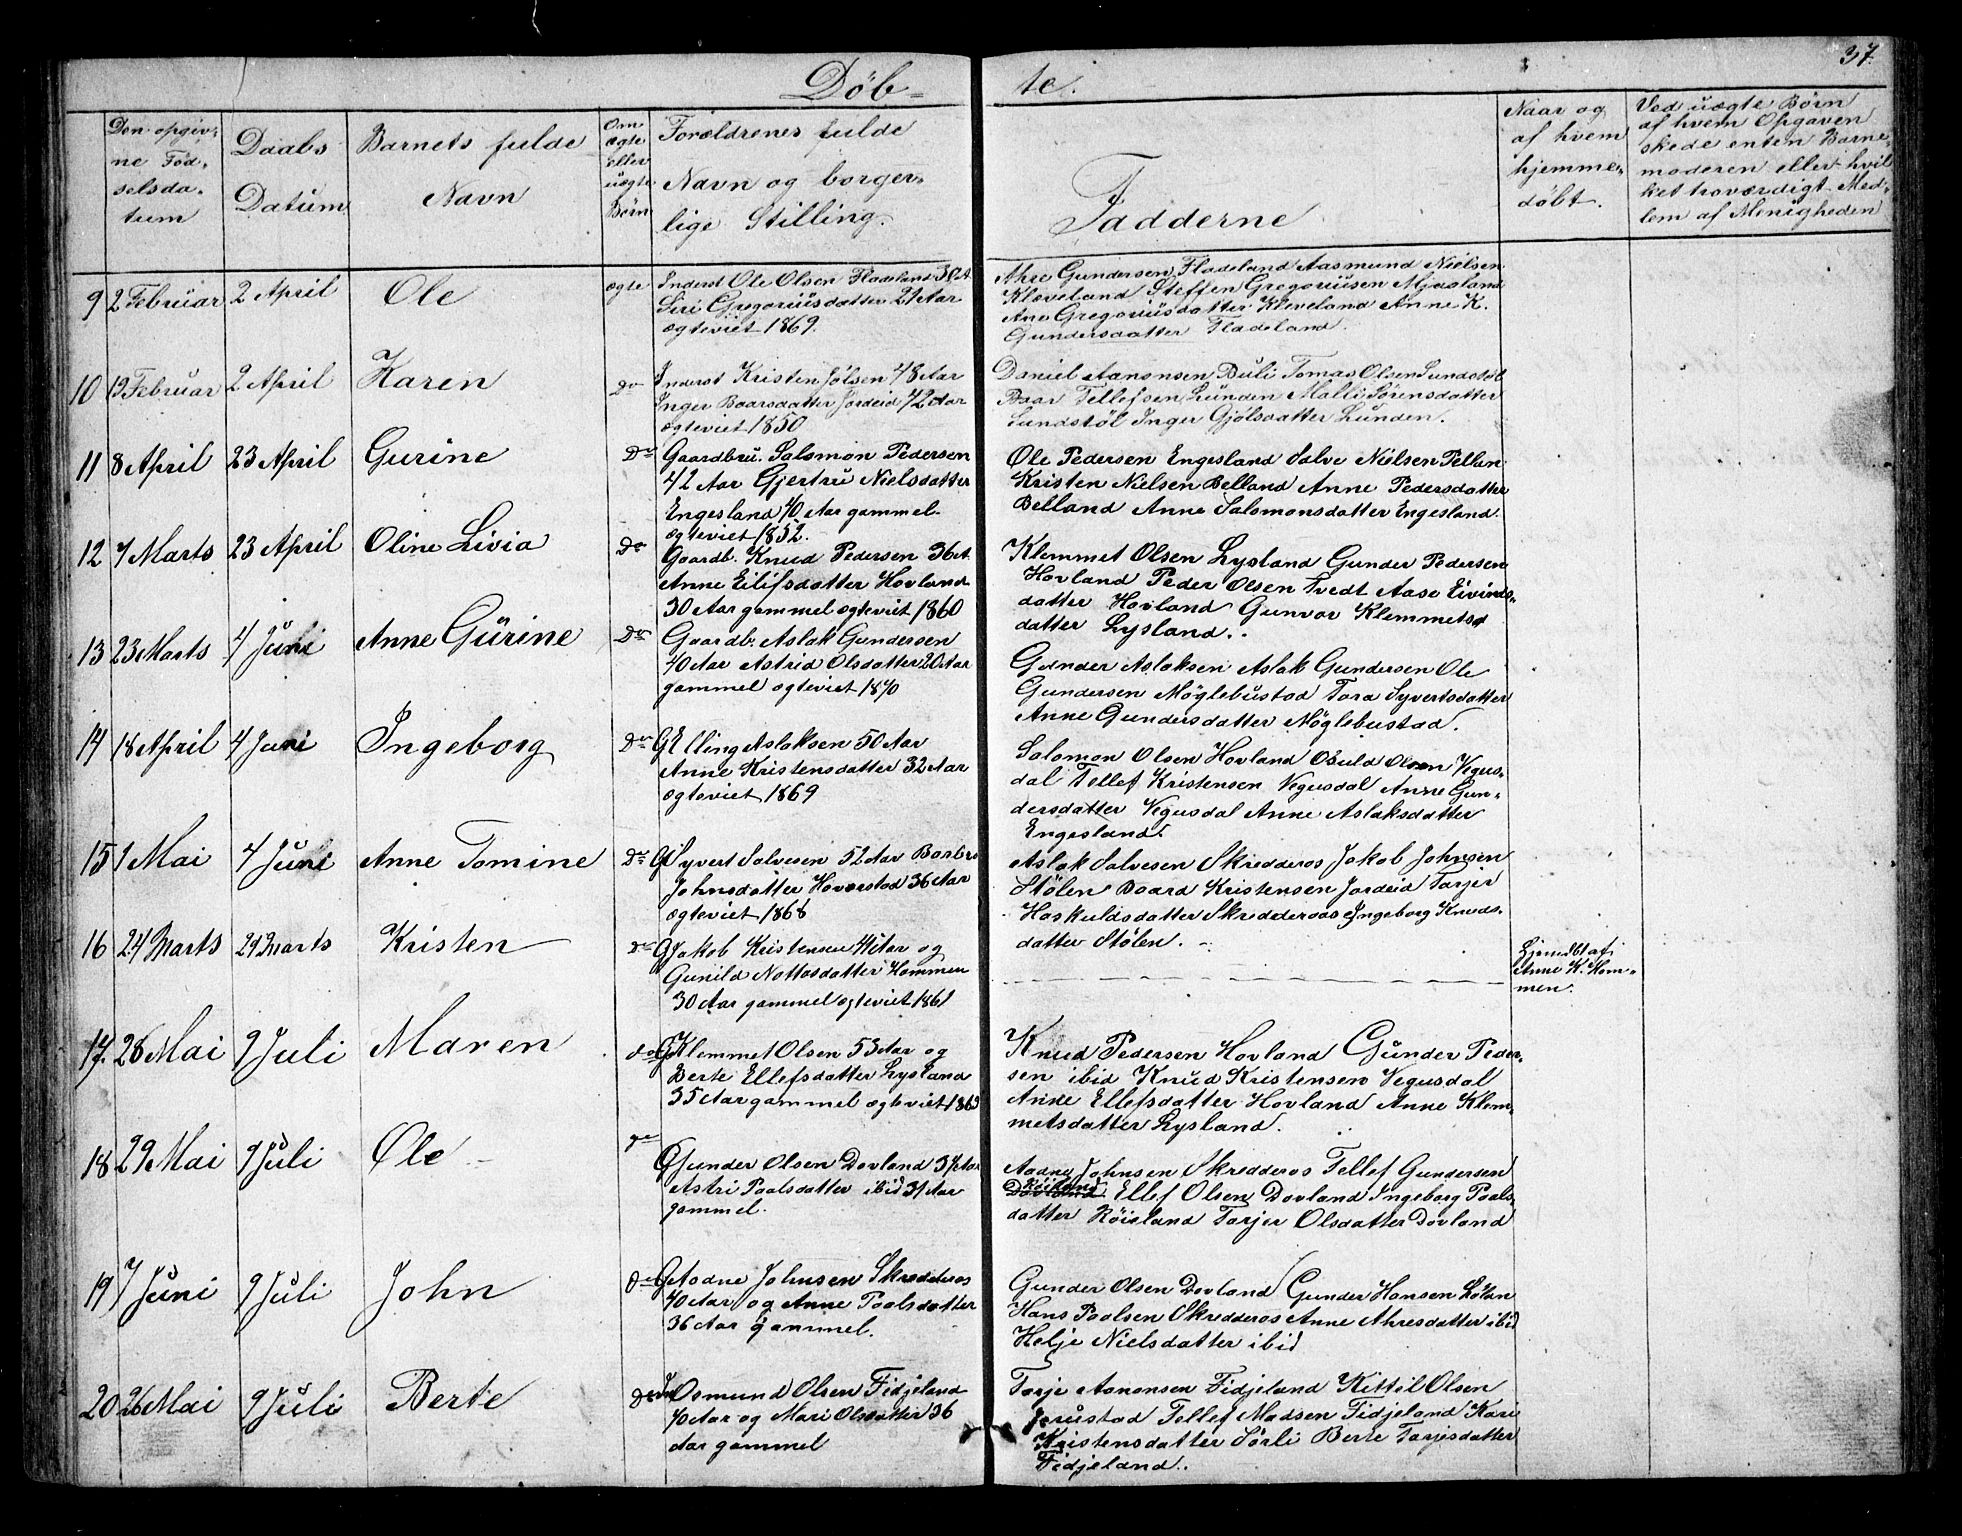 37.
Døb- te.
Den opgiv-
ne Fød-
selsda-
tum
Daabs
Datum
Barnets fulde
Navn
Om
ægte
eller
uægte
Børn
Forældrenes fulde
Navn og borger-
lige Stilling.
Fadderne
Naar og
af hvem
hjemme-
døbt.
Ved uægte Børn
af hvem Opgaven
skede enten Barne-
moderen eller hvil
ket troværdigt Med-
lem af Menigheden
9 2 Februar 2 April Ole ægte
Inderst Ole Olsen Fladeland 30 A.
Siri Gregoriusdatter 27 Aar
ægteviet 1869.
Ahre Gundersen Fladeland Aasmund Nielsen
Kleveland Steffen Gregoriusen Mjaaland
Ane Gregoriusdatter Kleveland Anne K.
Gundersdatter Fladeland.
10 19 Februar 2 April Karen do
Inderst Kristen Jølsen 48 Aar
Inger Baarsdatter Jordeid 42 Aar
ægteviet 1850
Daniel Aanonsen Buli Tomas Olsen Sundstøl
Baar Tellefsen Lunden Malli Sørensdatter
Sundstøl Inger Gjølsdatter Lunden.
11 8 April 23 April Gurine Do
Gaardbru. Salomon Pedersen
42 Aar Gjertru Nielsdatter
Engesland 40 Aar gammel
ægteviet 1852.
Ole Pedersen Engesland Salve Nielsen Belland
Kristen Nielsen Belland Anne Pedersdatter
Belland Anne Salomonsdatter Engesland.
12 7 Marts 23 April Oline Livia Do
Gaardb. Knud Pedersen 36 A.
Anne Eilifsdatter Hovland
30 Aar gammel ægteviet 1860
Klemmet Olsen Lysland Gunder Pedersen
Hovland Peder Olsen Tvedt Aase Eivinds-
datter Hovland Gunvor Klemmets
datter Lysland.
13 23 Marts 4 Juni Anne Gurine Do
Gaardb. Aslak Gundersen
40 Aar Astrid Olsdatter 20 Aar
gammel ægteviet 1870
Gunder Aslaksen Aslak Gundersen Ole
Gundersen Møglebustad Tora Syvertsdatter
Anne Gundersdatter Møglebustad.
14 18 April 4 Juni Ingeborg Do
G Elling Aslaksen 50 Aar
Anne Kristensdatter 32 Aar
ægteviet 1869
Salomon Olsen Hovland Osuld Olsen Vegus-
dal Tellef Kristensen Vegusdal Anne Gun-
dersdatter Vegusdal Anne Aslaksdatter
Engesland.
15 1 Mai 4 Juni Anne Tomine Do
G Syvert Salvesen 52 Aar Barbro
Johnsdatter Hovorstad 36 Aar
ægteviet 1868
Aslak Salvesen Skredderos Jakob Johnsen
Stølen Baard Kristensen Jordeid Tarjer
Haskuldsdatter Skredderaas Ingeborg Knuds-
datter Stølen.
16 24 Marts 29 Marts Kristen Do
G Jakob Kristensen 41 Aar og
Gunild Nottosdatter Hommen
30 Aar gammel ægteviet 1861
Hjemdbt af
Anne K. Hom-
men.
17. 28 Mai 9 Juli Maren do
G Klemmet Olsen 53 Aar og
Berte Ellefsdatter Lysland
35 Aar gammel ægteviet 1863
Knud Pedersen Hovland Gunder Peder-
sen ibid Knud Kristensen Vegusdal
Anne Ellefsdatter Hovland Anne Klem-
metsdatter Lysland.
18 29 Mai 9 Juli Ole do
G Gunder Olsen Dovland 37 Aar
Astri Paalsdatter ibid 31 Aar
gammel.
Aadne Johnsen Skredderos Tellef Gundersen
Røisland Ellef Olsen Dovland Ingeborg Paals-
datter Røisland Tarjer Olsdatter Dovland
19 7 Juni 9 Juli John Do
G Aadne Johnsen Skredderos
40 Aar og Anne Paalsdatter
36 Aar gammel.
Gunder Olsen Dovland Gunder Hansen
Hans Paalsen Skredderos Anne Ahresdatter ibid
Helje Nielsdatter ibid
20 26 Mai 9 Juli Berte Do
In Osmund Olsen Fidjeland
40 Aar og Mari Olsdatter 36
Aar gammel
Tarje Aanonsen Fidjeland Kittil Olsen
Tellef Madsen Fidjeland Kari
Kristensdatter Sørli Berte Tarjesdatter
Fidjeland.